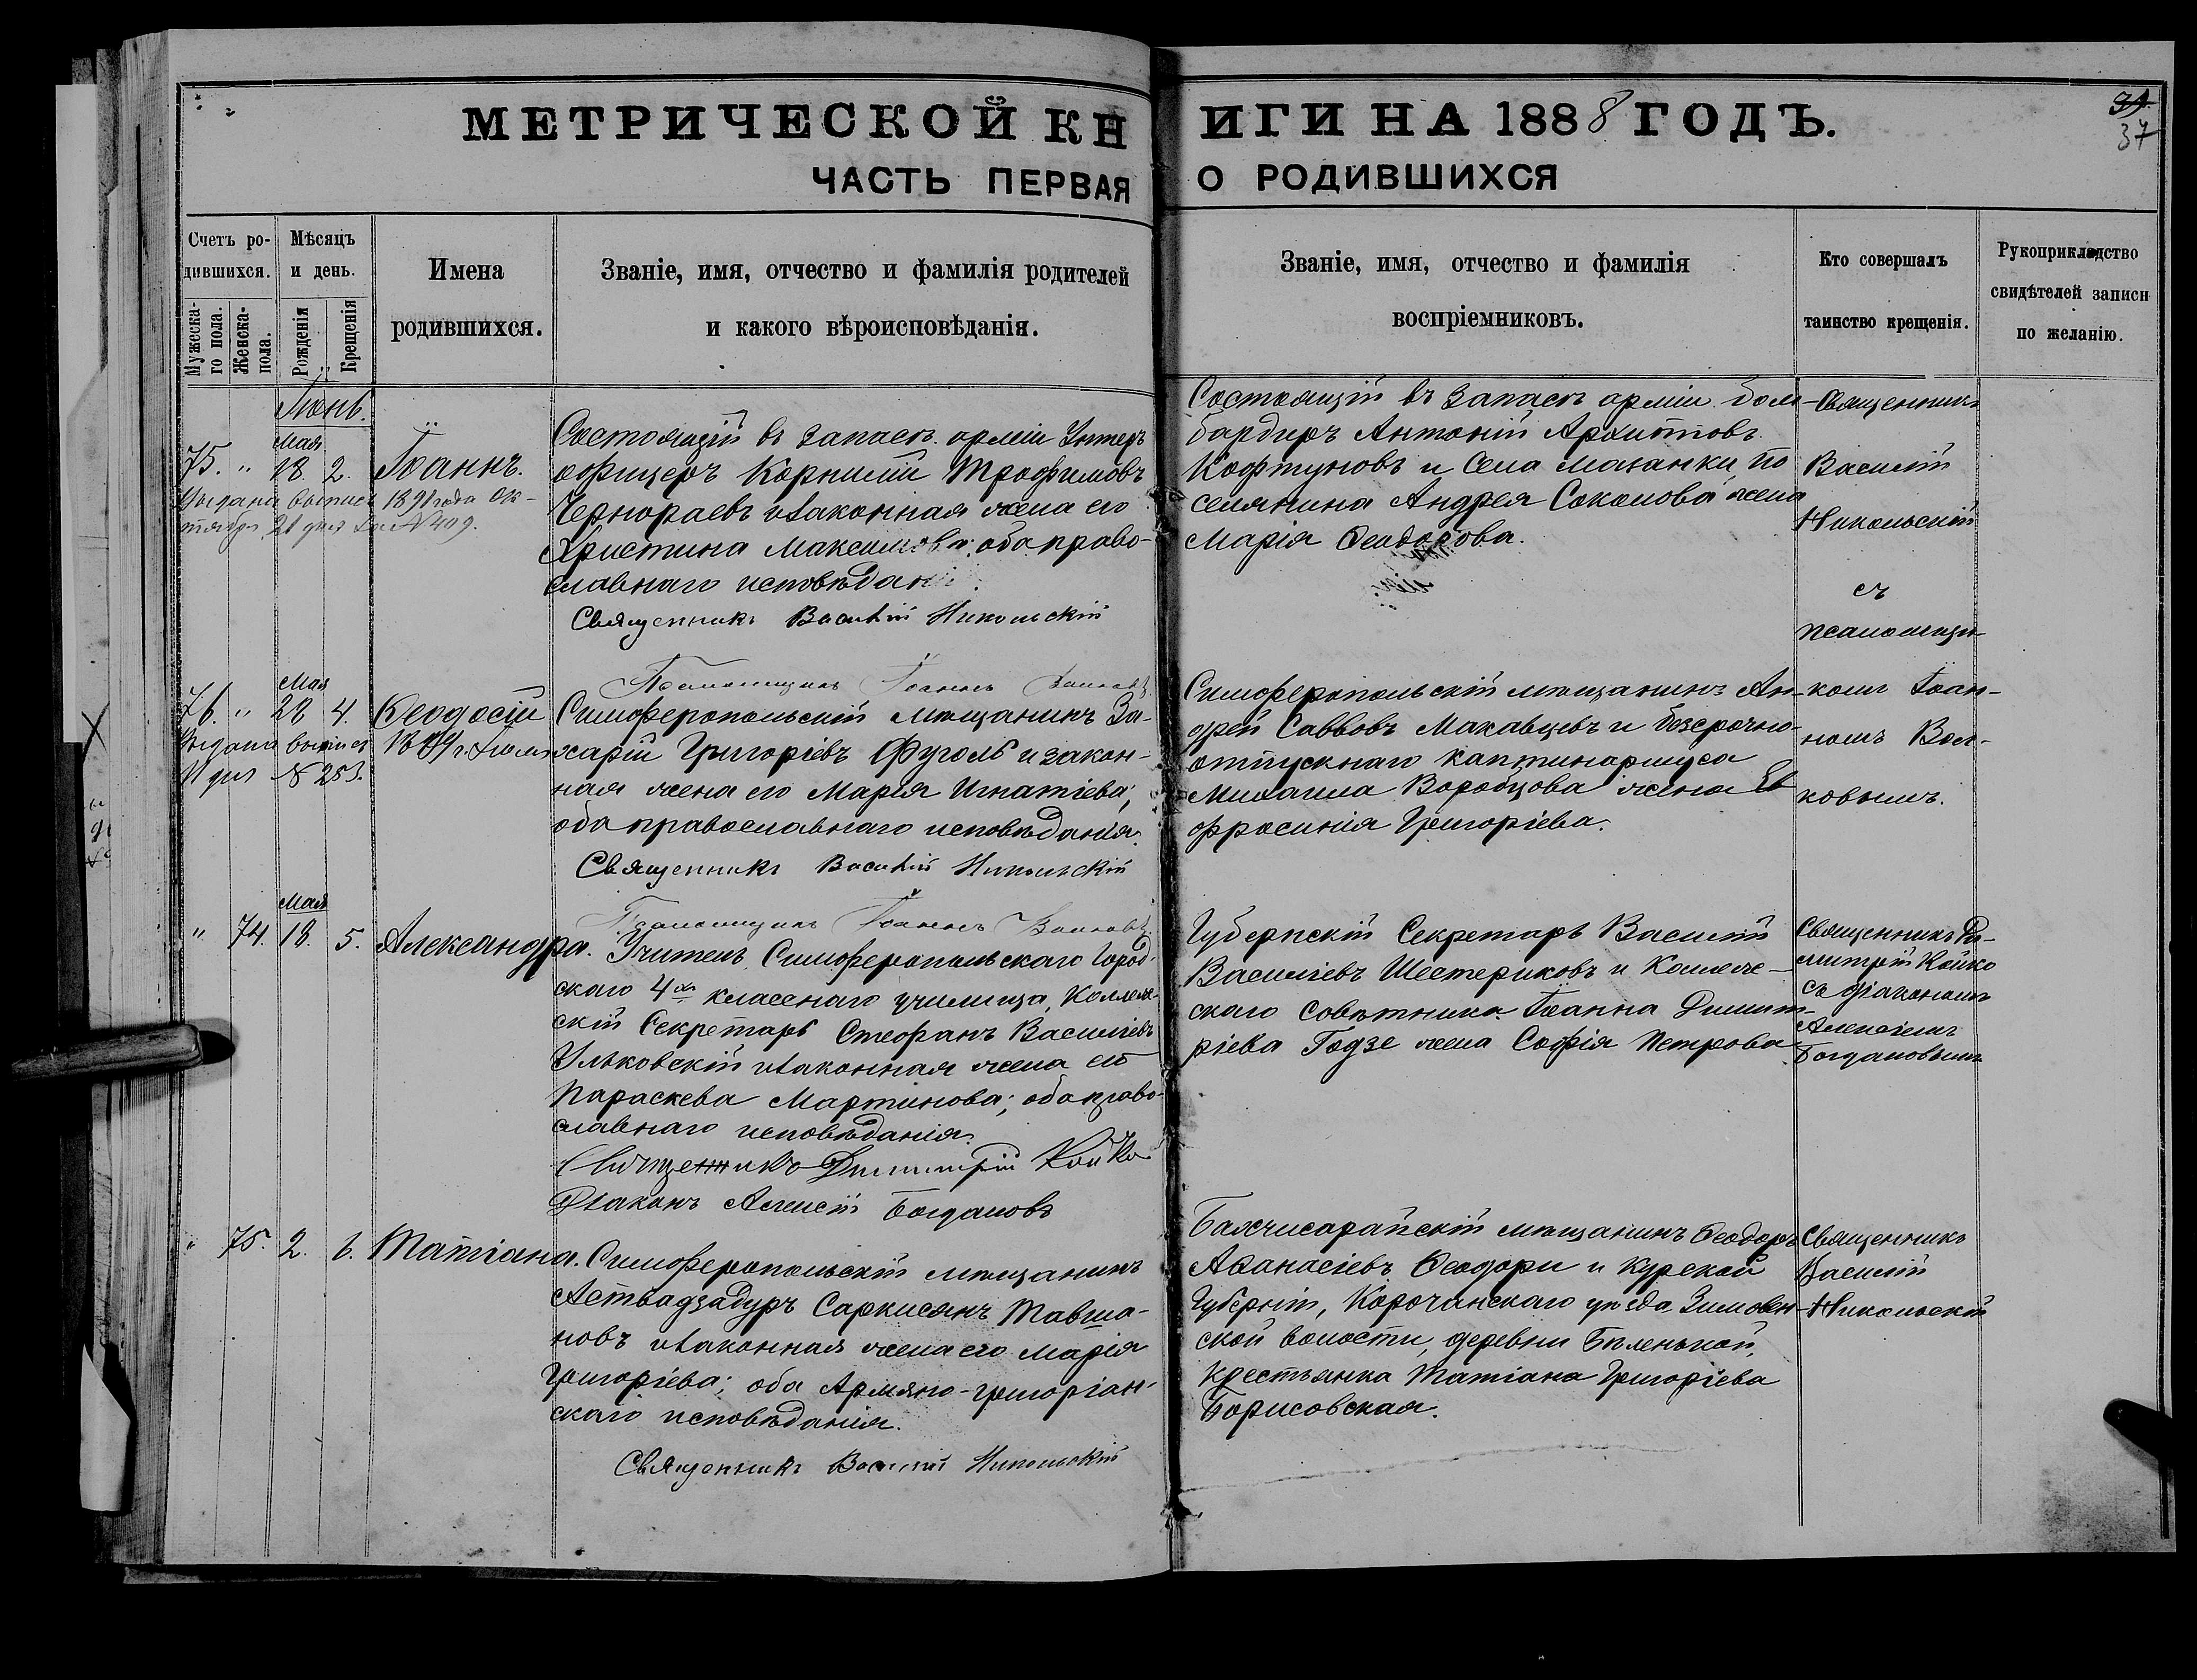 МЕТРИЧЕСКОЙ КНИГИ НА 1888 ГОДЪ.
37
ЧАСТЬ ПЕРВАЯ О РОДИВШИХСЯ
Счетъ ро-
дившихся.
Мужеска-
го пола.
Женска-
пола.
Мѣсяцъ
и день.
Рожденія
Крещенія
Имена
родившихся.
Званіе, имя, отчество и фамилія родителей
и какого вѣроисповѣданія.
Званіе, имя, отчество и фамилія
воспріемниковъ.
Кто совершалъ
таинство крещенія.
Рукоприкладство
свидѣтелей записи
по желанію.
Іюнь.
Мая
75. " 18. 2. Іоаннъ.
Выдана выпись 1898 года Ок-
тября 21 дня за № 409.
Состоящій въ запасѣ арміи Унтеръ
офицеръ Корнилій Трофимовъ
Чернораевъ и законная жена его
Христина Максимова; оба право-
славнаго исповѣданія.
Священникъ Василій Никольскій
Псаломщикъ Іоаннъ Волковъ
Состоящій въ запасѣ арміи бом-
бардиръ Антоній Архиповъ
Кофтуновъ и Села Мазанки по
селянина Андрея Соколова жена
Марія Ѳеодорова.
Священникъ
Василій
Никольскій
съ
псаломщи-
комъ Іоан-
номъ Вол-
ковымъ.
Мая
76. " 28 4. Ѳеодосій
Выдана выпись 1889 г. Іюля
11 дня № 253.
Симферопольскій мѣщанинъ За-
харій Григоріевъ Фуголь и закон-
ная жена его Марія Игнатіева;
оба православнаго исповѣданія.
Священникъ Василій Никольскій
Псаломщикъ Іоаннъ Волковъ
Симферопольскій мѣщанинъ Ан-
дрей Саввовъ Макавцевъ и безсрочно-
отпускнаго каптинармуса
Михаила Воробцова жена Ев
фросинія Григоріева.
Мая
" 74. 18. 5. Александра.
Учитель Симферопольскаго Город-
скаго 4хъ класснаго училища, Коллеж-
скій Секретарь Стефанъ Василіевъ
Ульковскій и законная жена его
Параскева Мартинова; оба право-
славнаго исповѣданія.
Священникъ Димитрій Койко
Діаконъ Алексій Богдановъ
Губернскій Секретарь Василій
Василіевъ Шестериковъ и Коллеж-
скаго Совѣтника Іоанна Димит-
ріева Годзе жена Софія Петрова
Священникъ Ди-
митрій Койко
съ діакономъ
Алексіемъ
Богдановымъ
" 75. 2. 6. Татіана.
Симферопольскій мѣщанинъ
Аствадзадуръ Саркисянъ Тавша-
новъ и законная жена его Марія
Григоріева; оба Армяно-григоріан-
скаго исповѣданія.
Священникъ Василій Никольскій
Бахчисарайскій мѣщанинъ Ѳеодоръ
Аѳанасіевъ Ѳеодори и Курской
Губерніи, Корочанскаго уѣзда Зимовен-
ской волости, деревни Бѣленькой,
крестьянка Татіана Григоріева
Борисовская.
Священникъ
Василій
Никольскій